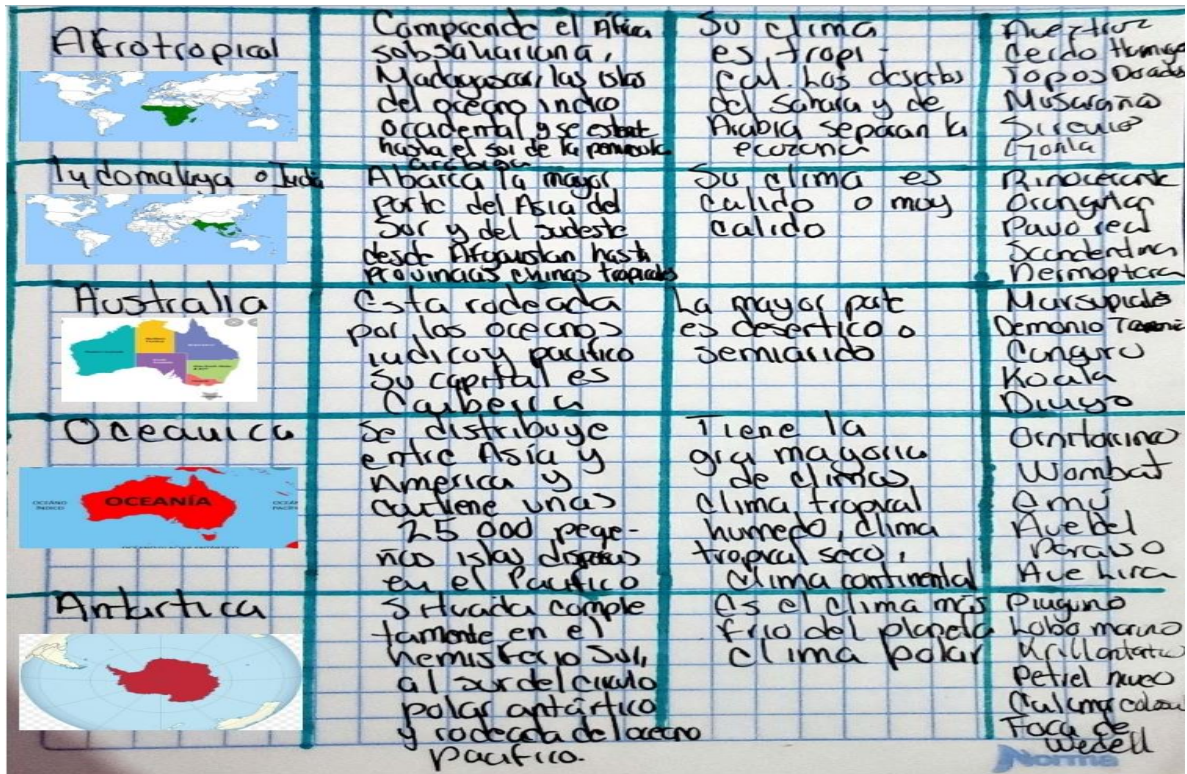 Afrotropical
Comprende el África
subsahariana,
Madagascar, las islas
del oceano indico
occidental y se estent
hasta el sur de la peninsula
arabiga.
Su clima
es tropi-
cal. Los desertos
del Sahara y de
Arabia separan la
ecozona
Avestruz
Cerdo Hormigu
Topos Dorados
Musaraña
Gorila
Indomalaya o India
Abarca la mayor
parte del Asia del
Sur y del sudeste
desde Afganistan hasta
provincias chinas tropicales
Su clima es
calido o muy
calido
Rinoceronte
Orangutan
Pavo real
Scandentina
Dermoptera
Australia
Esta rodeada
por los oceanos
indico y pacifico
Su capital es
Canberra
La mayor parte
es desertico o
semiarido
Marsupiales
Demonio
Canguro
Koala
Dingo
Oceanica
OCEANÍA
OCÉANO
ÍNDICO
Se distribuye
entre Asía y
America y
contiene unas
25 000 peqe-
ñas islas dispersas
en el Pacifico
Tiene la
gra mayoria
de climas
Clima tropical
humedo, clima
tropical seco,
clima continental
Ornitorrinco
Wombat
Emú
Ave del
Paraiso
Ave Lira
Antartica
Situada comple
tamente en el
hemisferio Sur,
al sur del circulo
polar antártico
y rodeada del oceano
pacifico.
Es el clima más
frio del planeta
clima polar
Pinguino
Lobo marino
Krill antartico
Petrel niveo
Calamar colosal
Foca de
Wedell
Norma